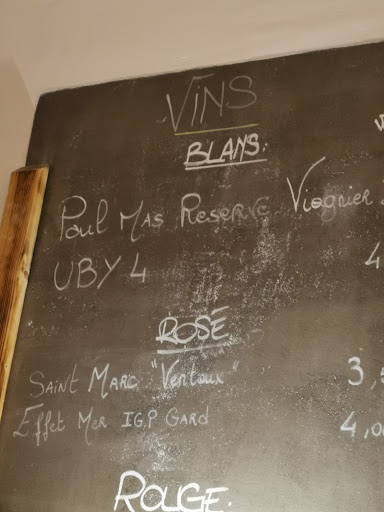 VINS
BLANS.
Paul MAS RESERVE Viognier
UBY 4 4
ROSÉ
SAINT MARC "Ventoux" 3,
Effet MER IGP GARD 4,0
ROUGE.